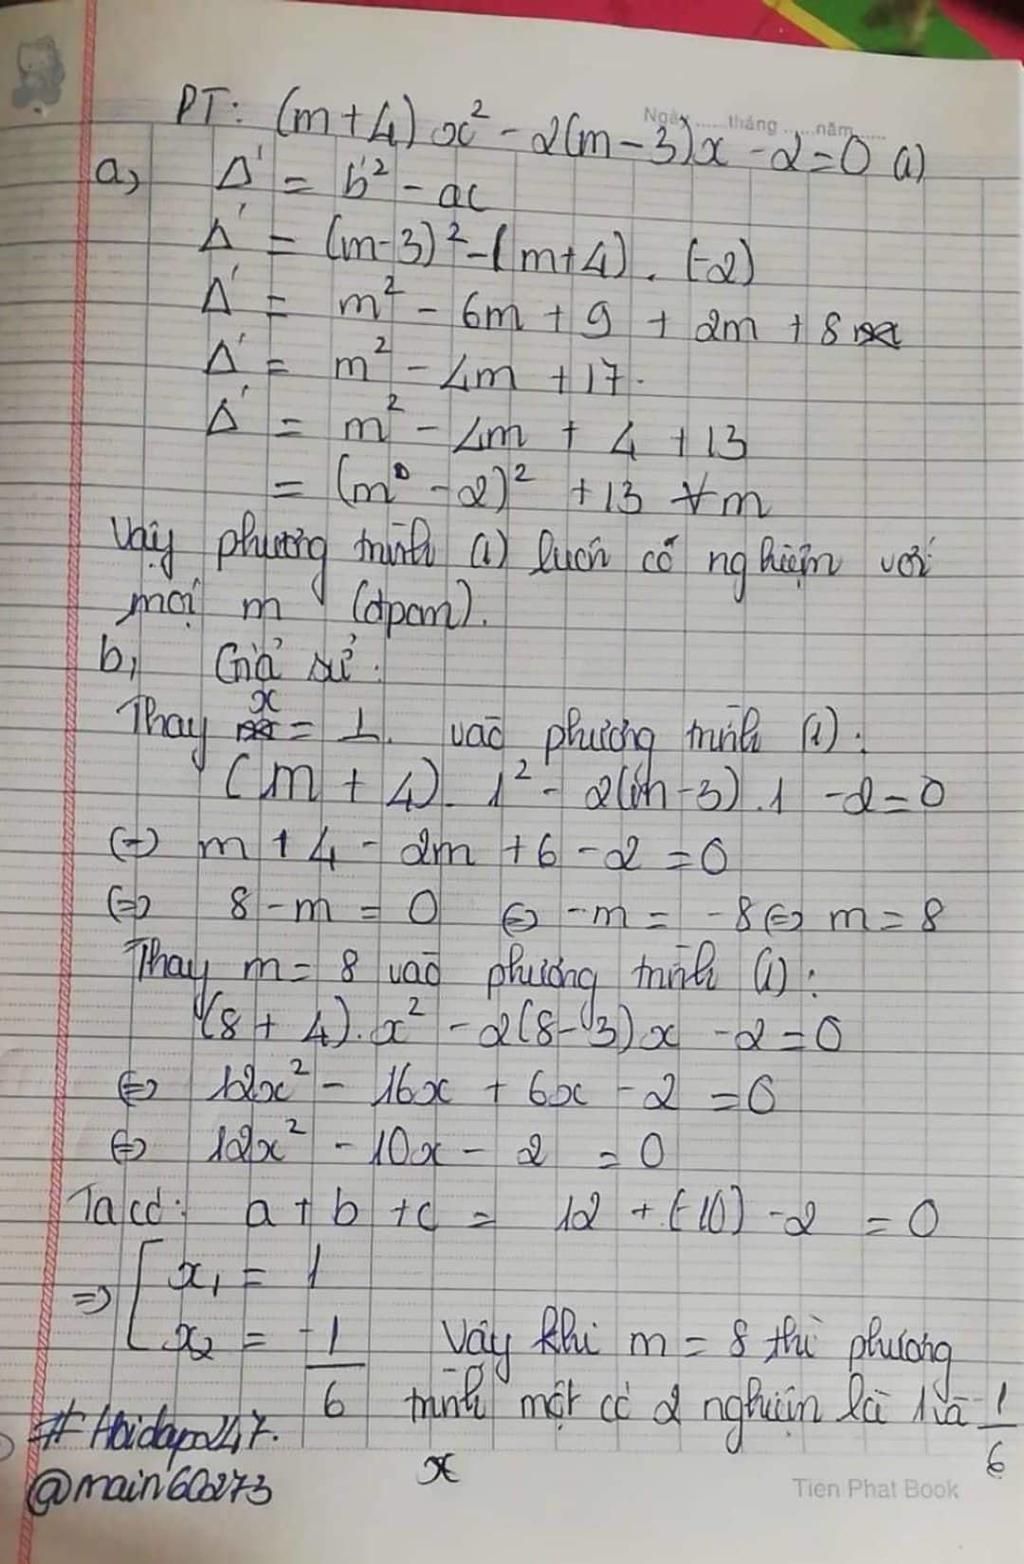 Ngày ...... tháng ...... năm ......
PT: (m+4)x² - 2(m-3)x - 2 = 0 (1)
a, Δ' = b'² - ac
Δ' = (m-3)² - (m+4) . (-2)
Δ' = m² - 6m + 9 + 2m + 8
Δ' = m² - 4m + 17.
Δ' = m² - 4m + 4 + 13
= (m - 2)² + 13 ∀m
Vậy phương trình (1) luôn có nghiệm với
mọi m (đpcm).
b, Giả sử:
Thay x = 1. vào phương trình (1):
(m + 4). 1² - 2(m-3).1 - 2 = 0
(=) m + 4 - 2m + 6 - 2 = 0
(=) 8 - m = 0 (=) -m = -8 (=) m = 8
Thay m = 8 vào phương trình (1):
(8 + 4). x² - 2(8-3)x - 2 = 0
(=) 12x² - 16x + 6x - 2 = 0
(=) 12x² - 10x - 2 = 0
Ta có: a + b + c = 12 + (-10) - 2 = 0
=> [ x₁ = 1
x₂ = -1/6 Vậy khi m = 8 thì phương
trình một có 2 nghiệm là 1 và 1/6
#Hoidap247.
@main60273
x
Tien Phat Book